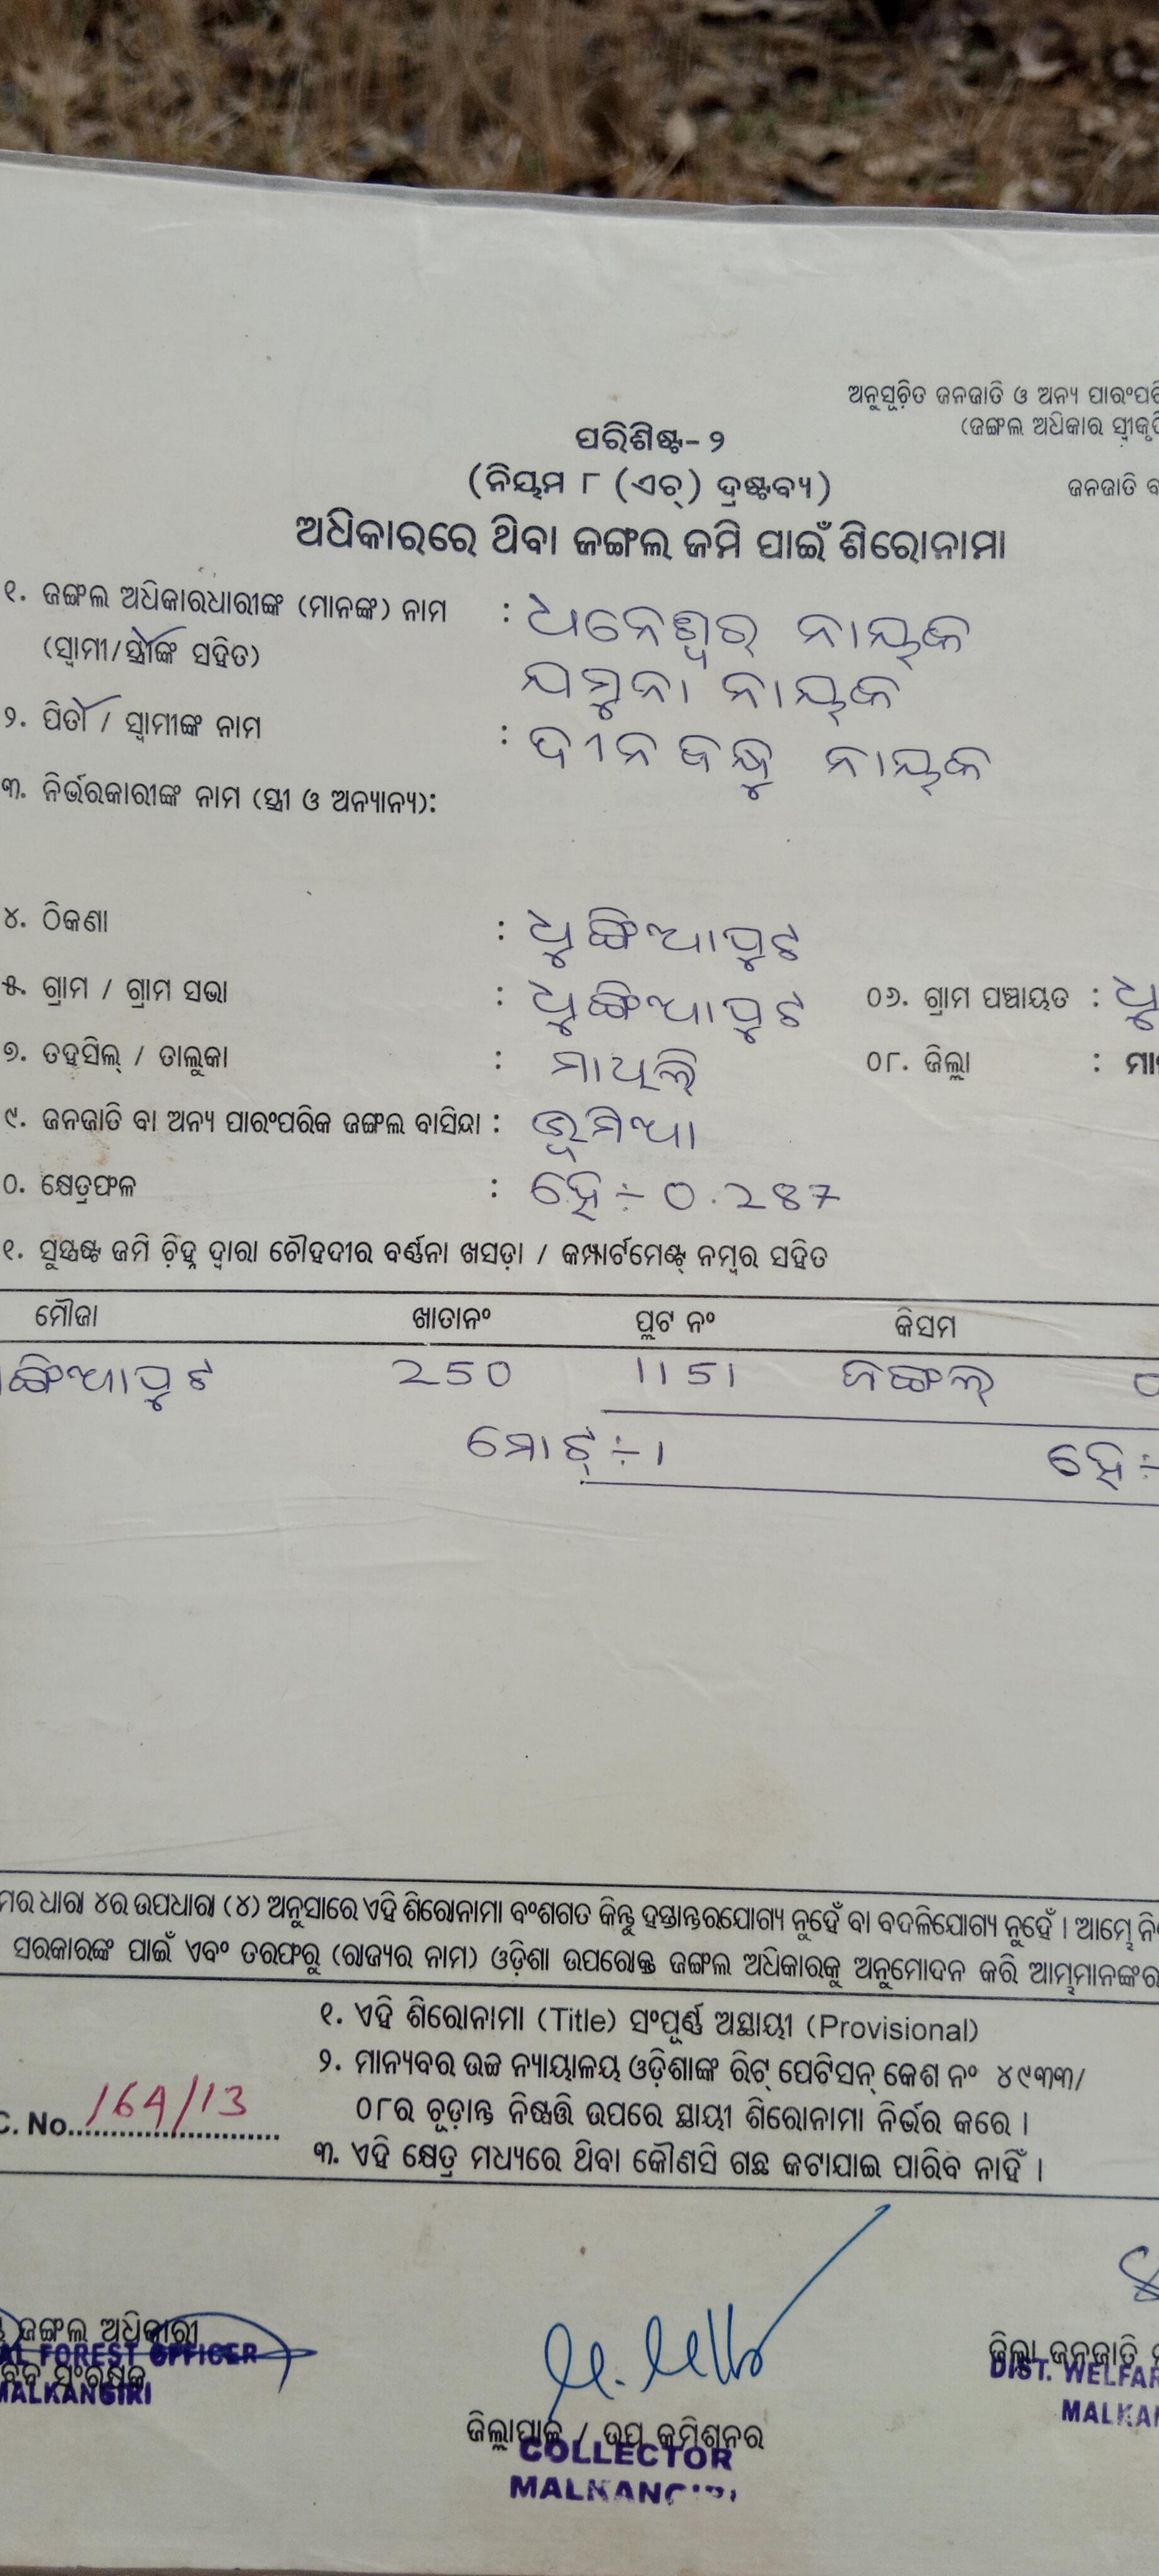 ଅନୁସୂଚିତ ଜନଜାତି ଓ ଅନ୍ୟ ପାରଂପରି
(ଜଙ୍ଗଲ ଅଧିକାର ସ୍ୱୀକୃତି
ପରିଶିଷ୍ଟ- ୨
(ନିୟମ ୮ (ଏଚ୍) ଦ୍ରଷ୍ଟବ୍ୟ)
ଜନଜାତି ବ
ଅଧିକାରରେ ଥିବା ଜଙ୍ଗଲ ଜମି ପାଇଁ ଶିରୋନାମା
୧. ଜଙ୍ଗଲ ଅଧିକାରଧାରୀଙ୍କ (ମାନଙ୍କ) ନାମ : ଧନେଶ୍ୱର ନାୟକ
(ସ୍ୱାମୀ/ସ୍ତ୍ରୀଙ୍କ ସହିତ) ଯମୁନା ନାୟକ
୨. ପିତା / ସ୍ୱାମୀଙ୍କ ନାମ : ଦୀନବନ୍ଧୁ ନାୟକ
୩. ନିର୍ଭରକାରୀଙ୍କ ନାମ (ସ୍ତ୍ରୀ ଓ ଅନ୍ୟାନ୍ୟ):
୪. ଠିକଣା : ଧୁଙ୍ଗିଆପୁଟ
୫. ଗ୍ରାମ / ଗ୍ରାମ ସଭା : ଧୁଙ୍ଗିଆପୁଟ ୦୬. ଗ୍ରାମ ପଞ୍ଚାୟତ : ଧୁ
୭. ତହସିଲ୍ / ତାଲୁକା : ମାଥିଲି ୦୮. ଜିଲ୍ଲା : ମା
୯. ଜନଜାତି ବା ଅନ୍ୟ ପାରଂପରିକ ଜଙ୍ଗଲ ବାସିନ୍ଦା : ଭୂମିଆ
୦. କ୍ଷେତ୍ରଫଳ : ହେ ÷ 0.287
୧. ସୁସ୍ପଷ୍ଟ ଜମି ଚିହ୍ନ ଦ୍ୱାରା ଚୌହଦୀର ବର୍ଣ୍ଣନା ଖସଡ଼ା / କମ୍ପାର୍ଟମେଣ୍ଟ୍ ନମ୍ବର ସହିତ
ମୌଜା ଖାତାନଂ ପ୍ଲଟ ନଂ କିସମ
ଙ୍ଗିଆପୁଟ 250 1151 ଜଙ୍ଗଲ୍ 0
ମୋଟ୍ ÷ 1 ହେ ÷
ମର ଧାରା ୪ର ଉପଧାରା (୪) ଅନୁସାରେ ଏହି ଶିରୋନାମା ବଂଶଗତ କିନ୍ତୁ ହସ୍ତାନ୍ତରଯୋଗ୍ୟ ନୁହେଁ ବା ବଦଳିଯୋଗ୍ୟ ନୁହେଁ । ଆମ୍ଭେ ନି
ସରକାରଙ୍କ ପାଇଁ ଏବଂ ତରଫରୁ (ରାଜ୍ୟର ନାମ) ଓଡ଼ିଶା ଉପରୋକ୍ତ ଜଙ୍ଗଲ ଅଧିକାରକୁ ଅନୁମୋଦନ କରି ଆମ୍ଭମାନଙ୍କର
୧. ଏହି ଶିରୋନାମା (Title) ସଂପୂର୍ଣ୍ଣ ଅସ୍ଥାୟୀ (Provisional)
୨. ମାନ୍ୟବର ଉଚ୍ଚ ନ୍ୟାୟାଳୟ ଓଡ଼ିଶାଙ୍କ ରିଟ୍ ପେଟିସନ୍ କେଶ ନଂ ୪୯୩୩/
୦୮ର ଚୂଡ଼ାନ୍ତ ନିଷ୍ପତ୍ତି ଉପରେ ସ୍ଥାୟୀ ଶିରୋନାମା ନିର୍ଭର କରେ ।
C. No. 164/13
୩. ଏହି କ୍ଷେତ୍ର ମଧ୍ୟରେ ଥିବା କୌଣସି ଗଛ କଟାଯାଇ ପାରିବ ନାହିଁ ।
ଜଙ୍ଗଲ ଅଧିକାରୀ
AL FOREST OFFICER
ସଂରକ୍ଷକ
MALKANGIRI
ଜିଲ୍ଲାପାଳ / ଉପ କମିଶନର
COLLECTOR
MALKANGIRI
ଜିଲ୍ଲା ଜନଜାତି
DIST. WELFAR
MALKA